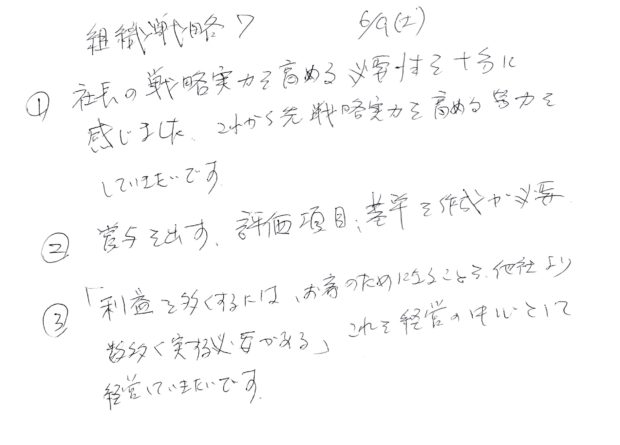 組織戦略7 6/9(土)
① 社長の戦略実力を高める必要性を十分に
感じました。これから先戦略実力を高める努力を
していきたいです。
② 賞与を出す、評価項目、基準を作成が必要
③ 「利益を多くするには、お客のためになることを、他社より
数多く実する必要がある」これを経営の中心として
経営していきたいです。